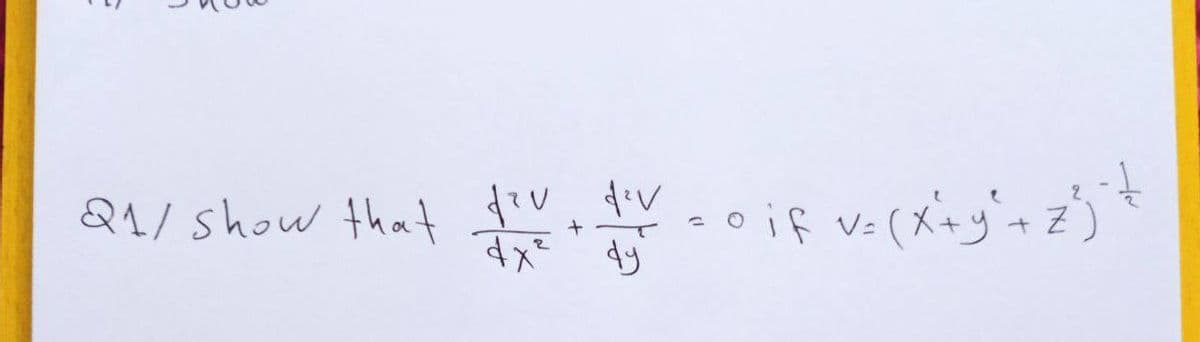 Q1/ show that d²v/dx² + d²v/dy² = 0 if v = (x² + y² + z²)^(-1/2)